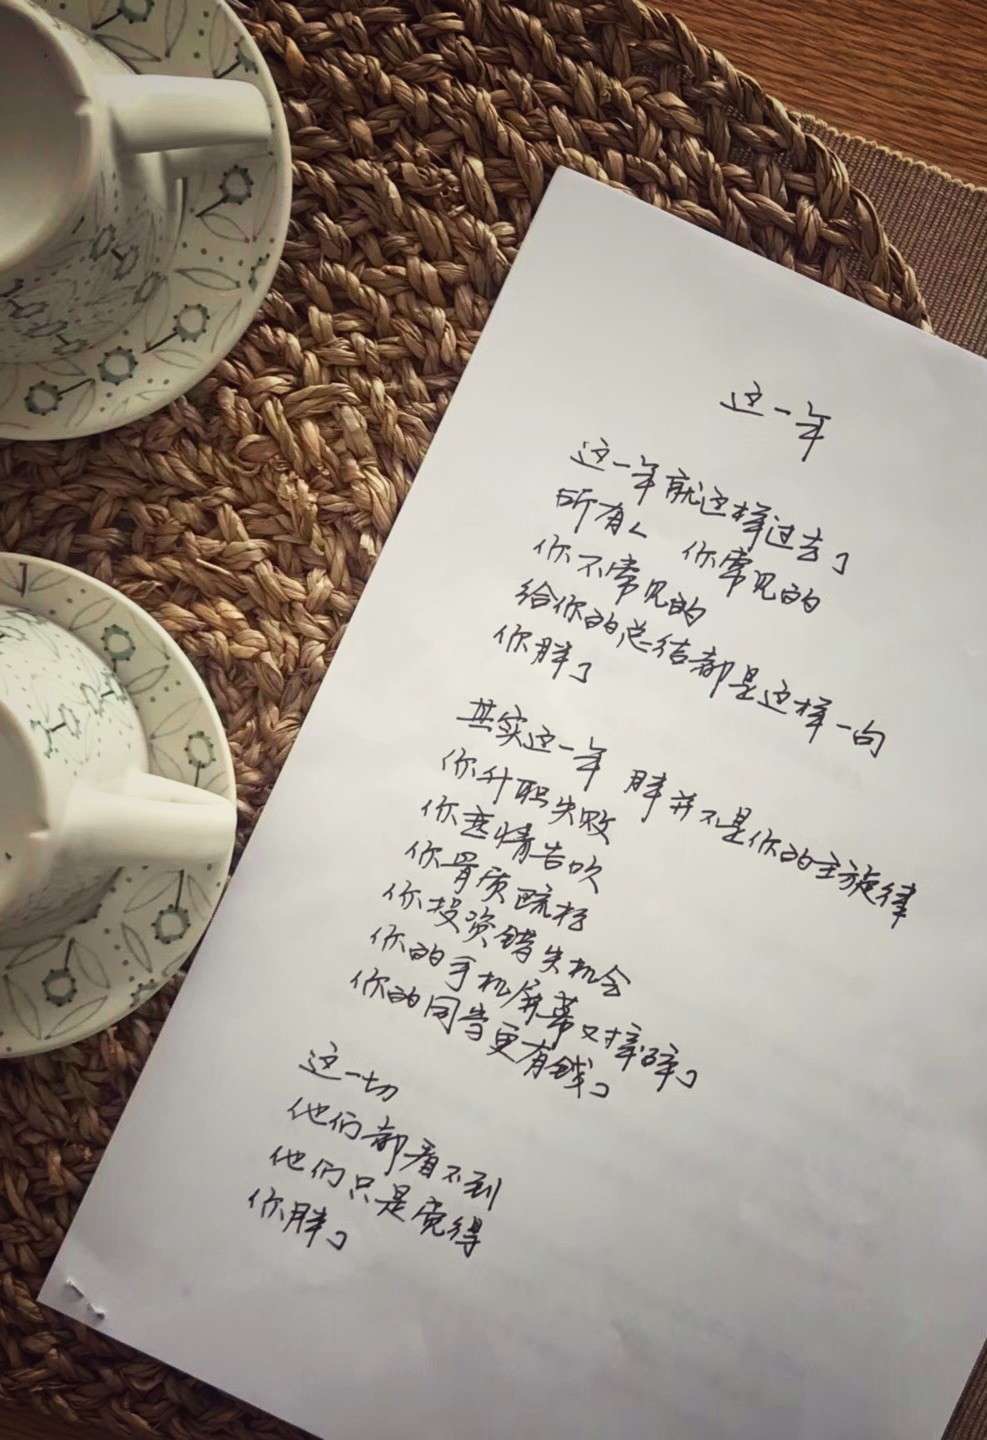 这一年
这一年就这样过去了
所有人 你常见的
你不常见的
给你的总结都是这样一句
你胖了
其实这一年 胖并不是你的主旋律
你升职失败
你恋情告吹
你骨质疏松
你投资错失机会
你的手机屏幕又摔碎了
你的同学更有钱了
这一切
他们都看不到
他们只是觉得
你胖了